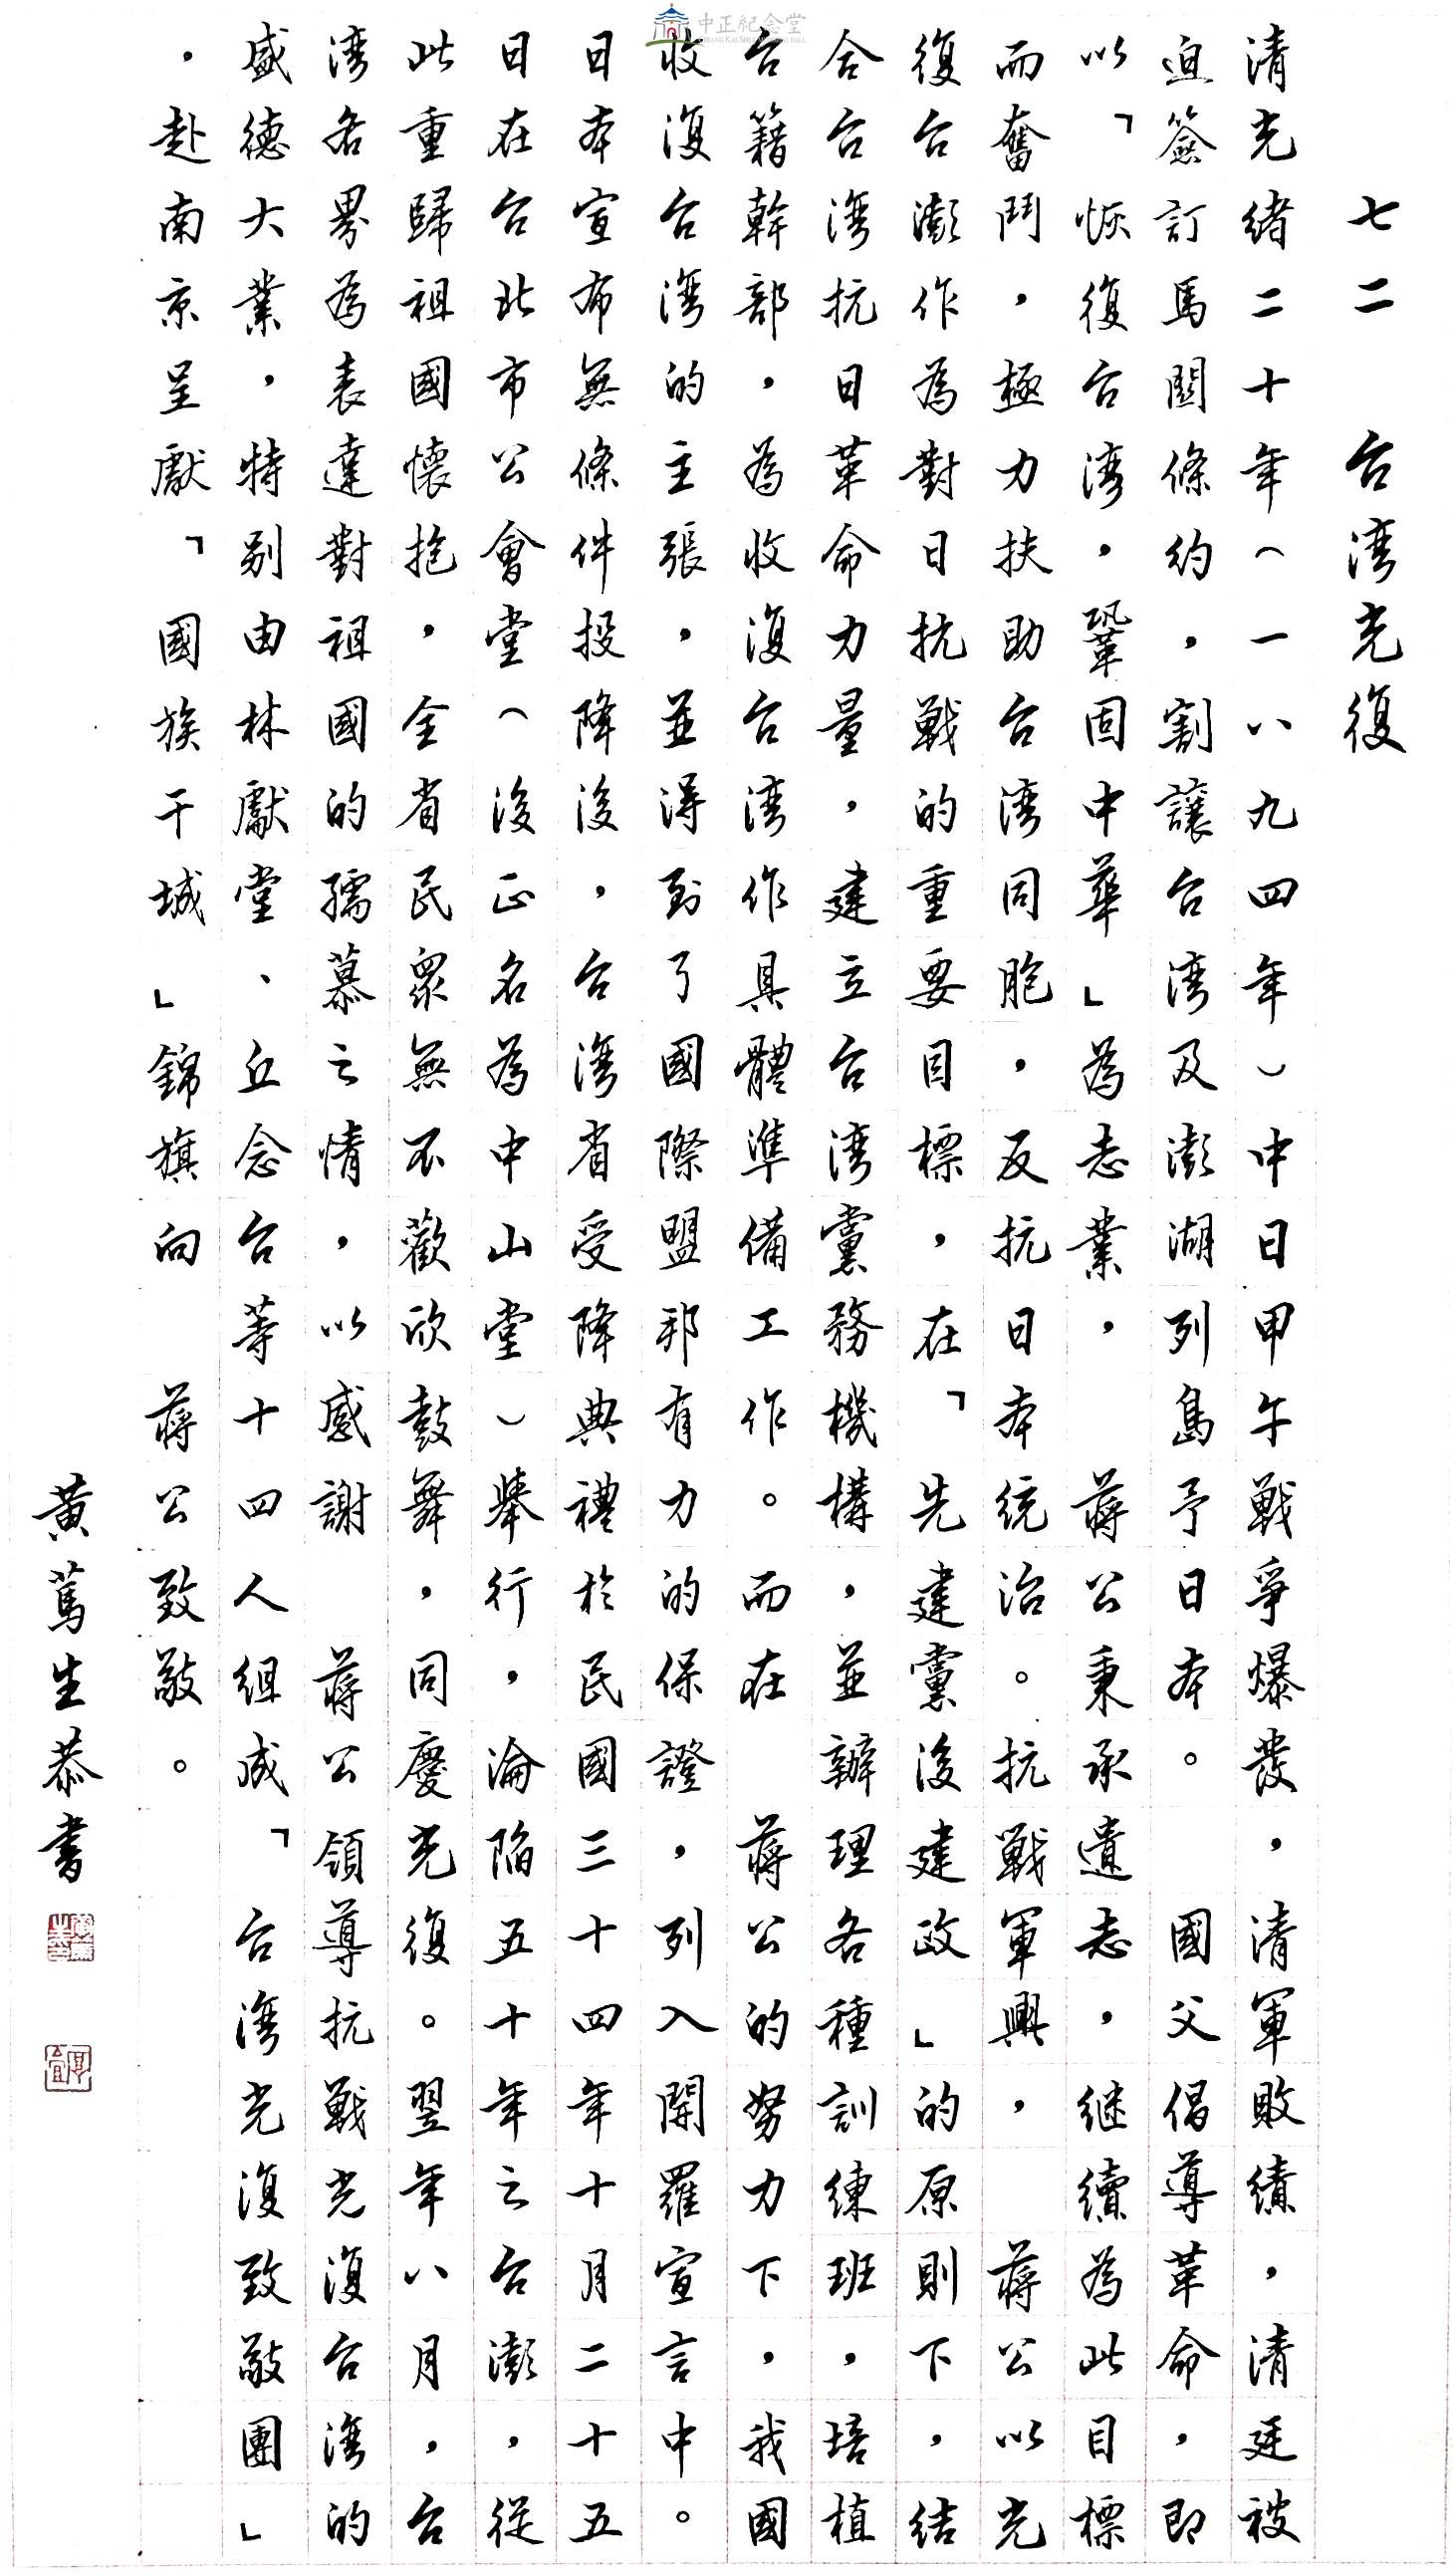 中正紀念堂
CHIANG KAI-SHEK MEMORIAL HALL
七二　台湾光復
清光緒二十年（一八九四年）中日甲午戰爭爆發，清軍敗績，清廷被
迫簽訂馬關條約，割讓台湾及澎湖列島予日本。　國父倡導革命，即
以「恢復台湾，鞏固中華」為志業，　蔣公秉承遺志，继續為此目標
而奮鬥，極力扶助台湾同胞，反抗日本統治。抗戰軍興，　蔣公以光
復台澎作為對日抗戰的重要目標，在「先建黨後建政」的原則下，結
合台湾抗日革命力量，建立台湾黨務機構，並辦理各種訓練班，培植
台籍幹部，為收復台湾作具體準備工作。而在　蔣公的努力下，我國
收復台湾的主張，並得到了國際盟邦有力的保證，列入開羅宣言中。
日本宣布無條件投降後，台湾省受降典禮於民國三十四年十月二十五
日在台北市公會堂（後正名為中山堂）舉行，淪陷五十年之台澎，從
此重歸祖國懷抱，全省民眾無不歡欣鼓舞，同慶光復。翌年八月，台
湾各界為表達對祖國的孺慕之情，以感謝　蔣公領導抗戰光復台湾的
盛德大業，特別由林獻堂、丘念台等十四人組成「台湾光復致敬團」
，赴南京呈獻「國族干城」錦旗向　蔣公致敬。
黃篤生恭書